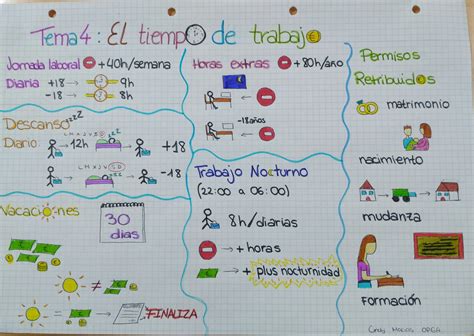 Tema 4: El tiempo de trabajo
Jornada laboral + 40h/semana
Diaria +18 → 9h
-18 → 8h
Descanso zzz
Diario: → 12h → zzz +18
L M X J V S D
→ → -18
L M X J V S D
Vacaciones
30
días
≠
≠
→ → FINALIZA
Horas extras + 80h/año
-18años
Trabajo Nocturno
(22:00 a 06:00)
8h/diarias
→ + horas
€ → + plus nocturnidad
Permisos
Retribuidos
matrimonio
nacimiento
mudanza
formación